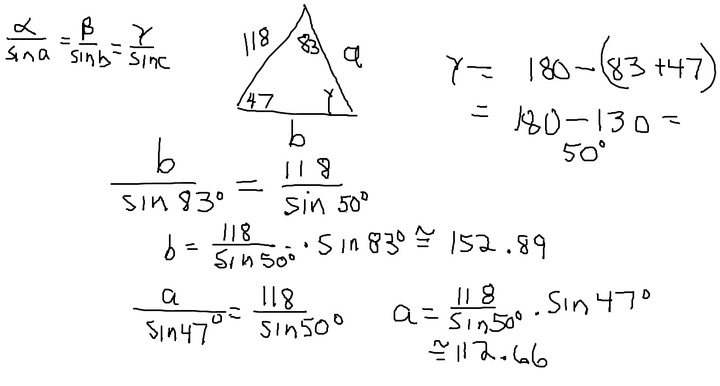 α/sin a = β/sin b = γ/sin c
118
83
a
47
γ
b
γ = 180 - (83 + 47)
= 180 - 130 =
50°
b/sin 83° = 118/sin 50°
b = 118/sin 50° · sin 83° ≅ 152.89
a/sin 47° = 118/sin 50°
a = 118/sin 50° · sin 47°
≅ 112.66